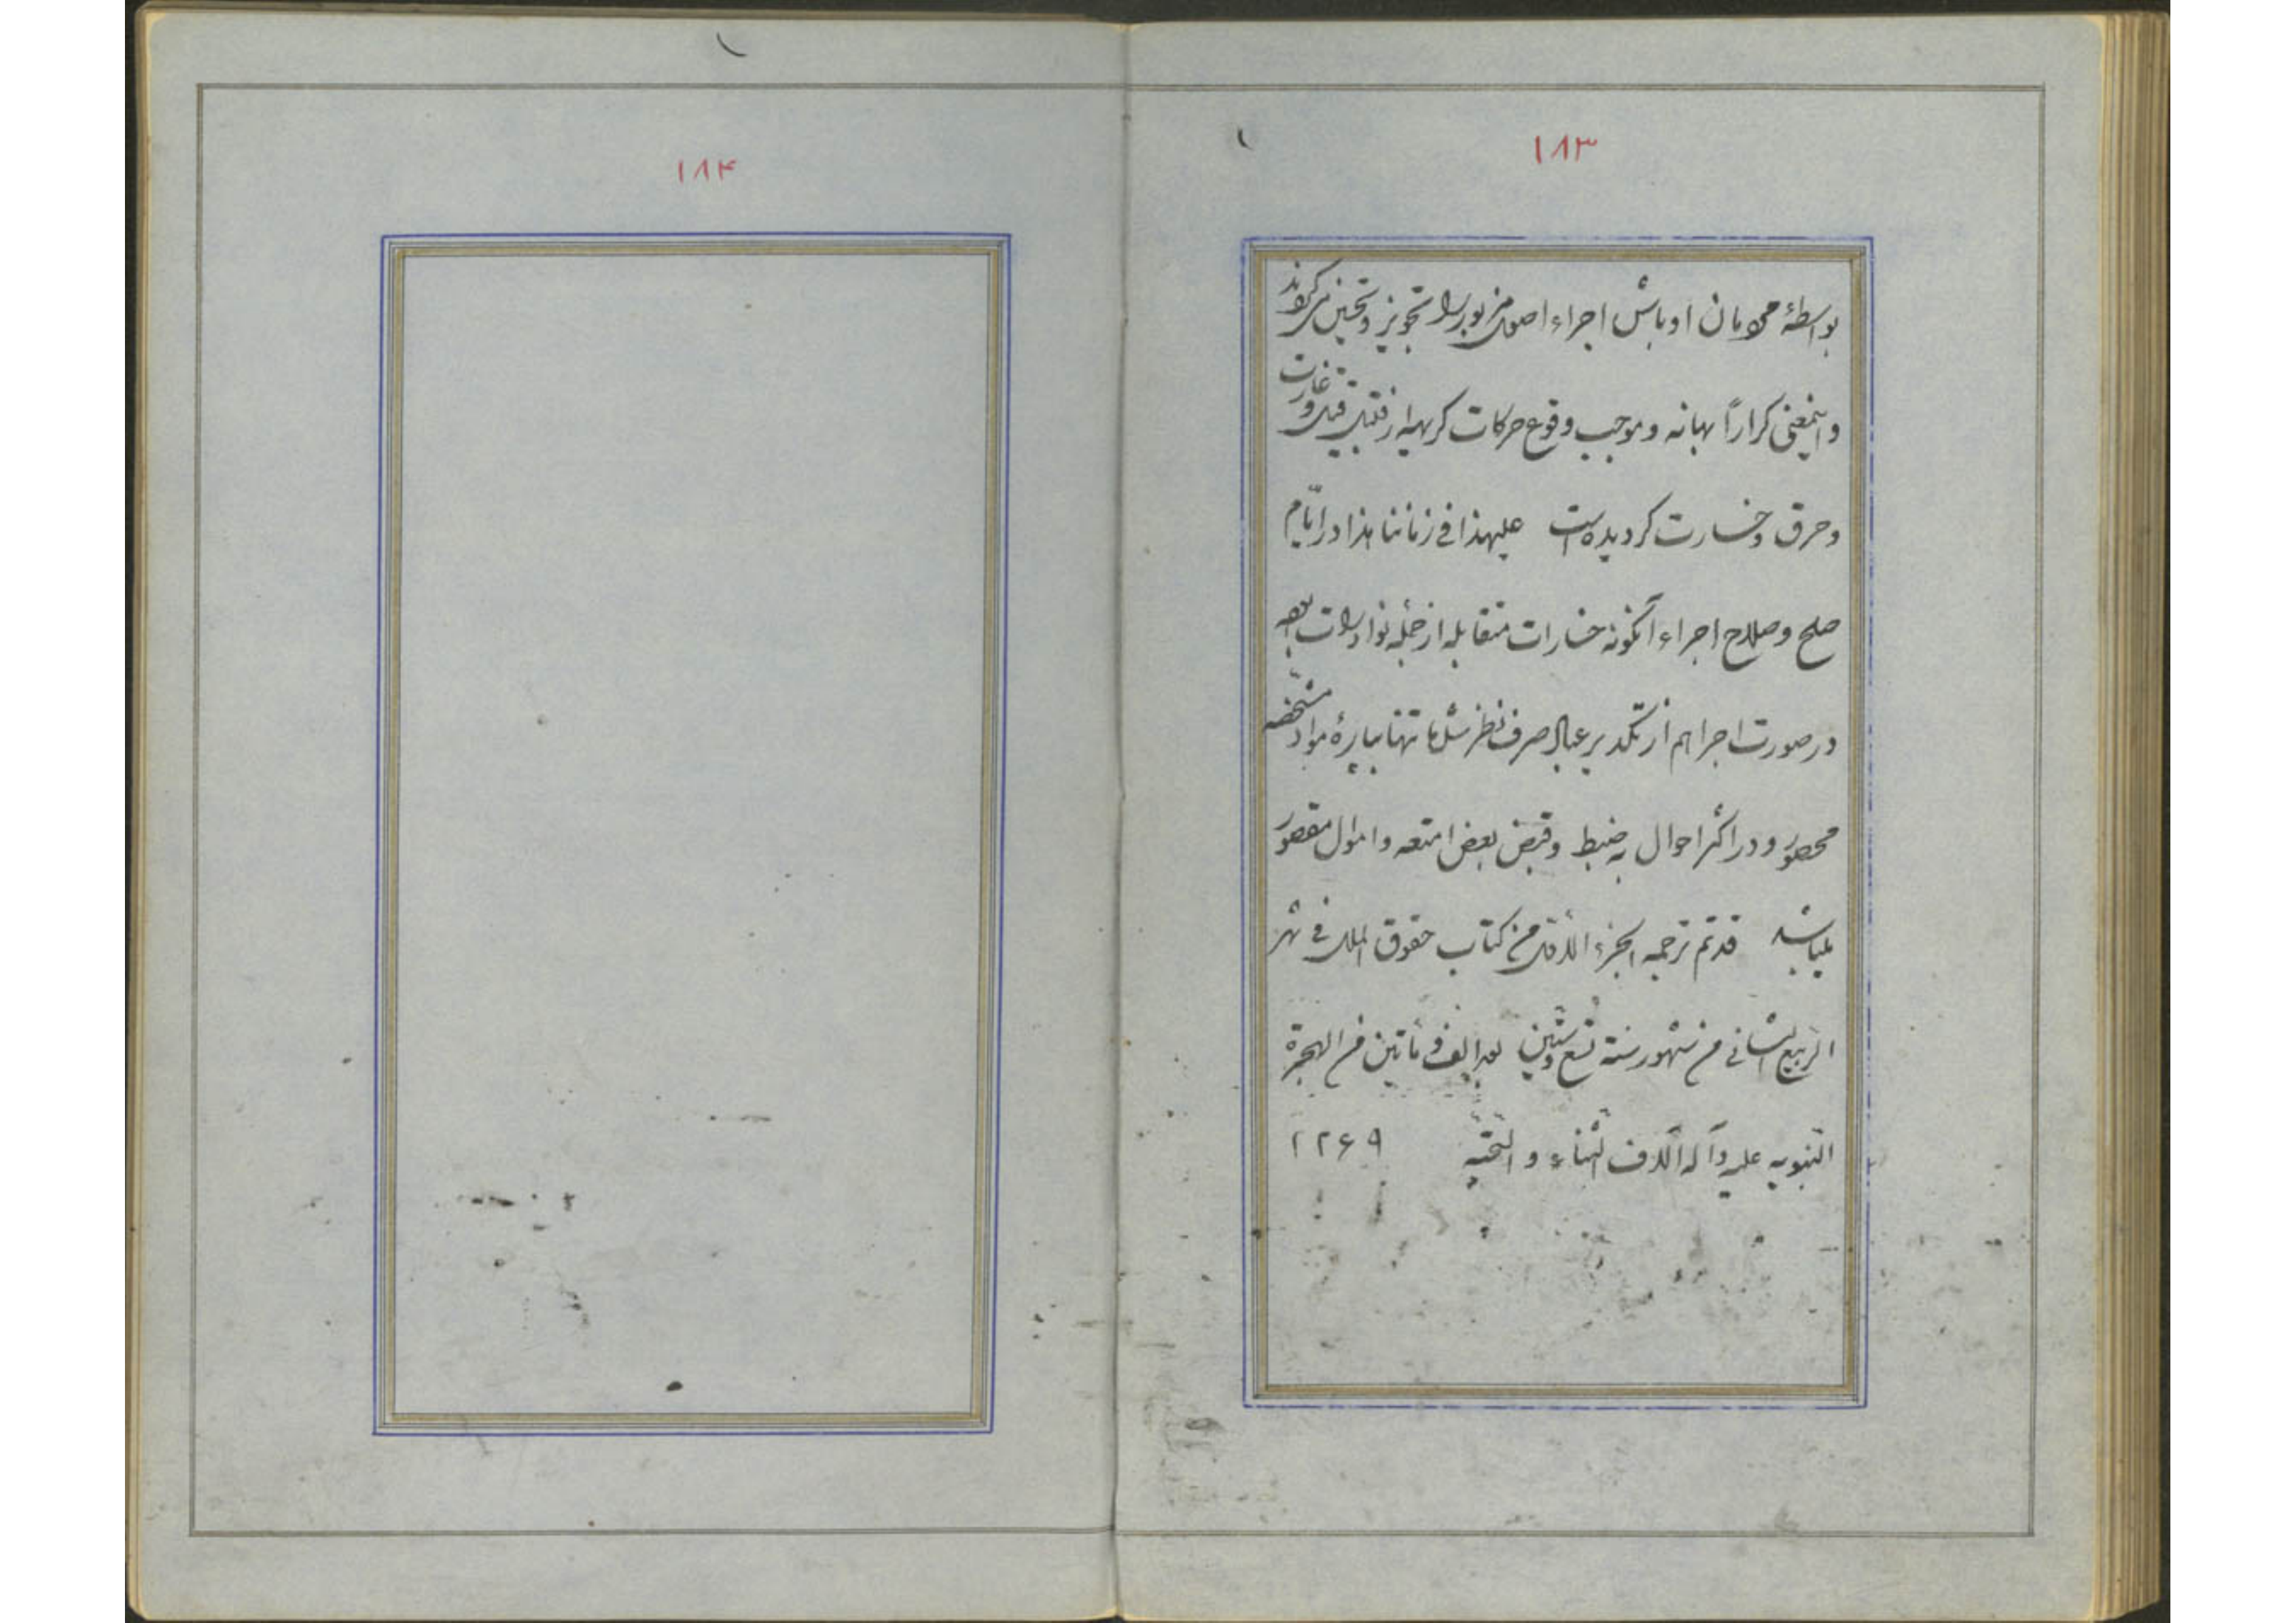 ۱۸۳
بواسطهٔ محرمان اوباش اجراء اصول مزبور را تجویز و تحسین می‌کردند
و اینمعنی کراراً بهانه و موجب وقوع حرکات کریهه از قبیل قتل و غارت
و حرق و خسارت گردیده است علیهذا فی زماننا هذا در ایّام
صلح و صلاح اجراء آنگونه خسارات متقابله از جمله نوادرات بوده
در صورت اجرا هم از تکدیر رعایا صرف نظر شده تنها بپارهٔ مواد مشخّصه
محصور و در اکثر احوال به ضبط و قبض بعض امتعه و اموال مقصور
میباشد قد تم ترجمه الجزء الاول من کتاب حقوق الملل فی شهر
الربیع الثانی من شهور سنة تسع و ستین بعد الف و مأتین من الهجرة
النبویه علیه و آله آلاف الثناء و التحیّه ۱۲۶۹
۱۸۴